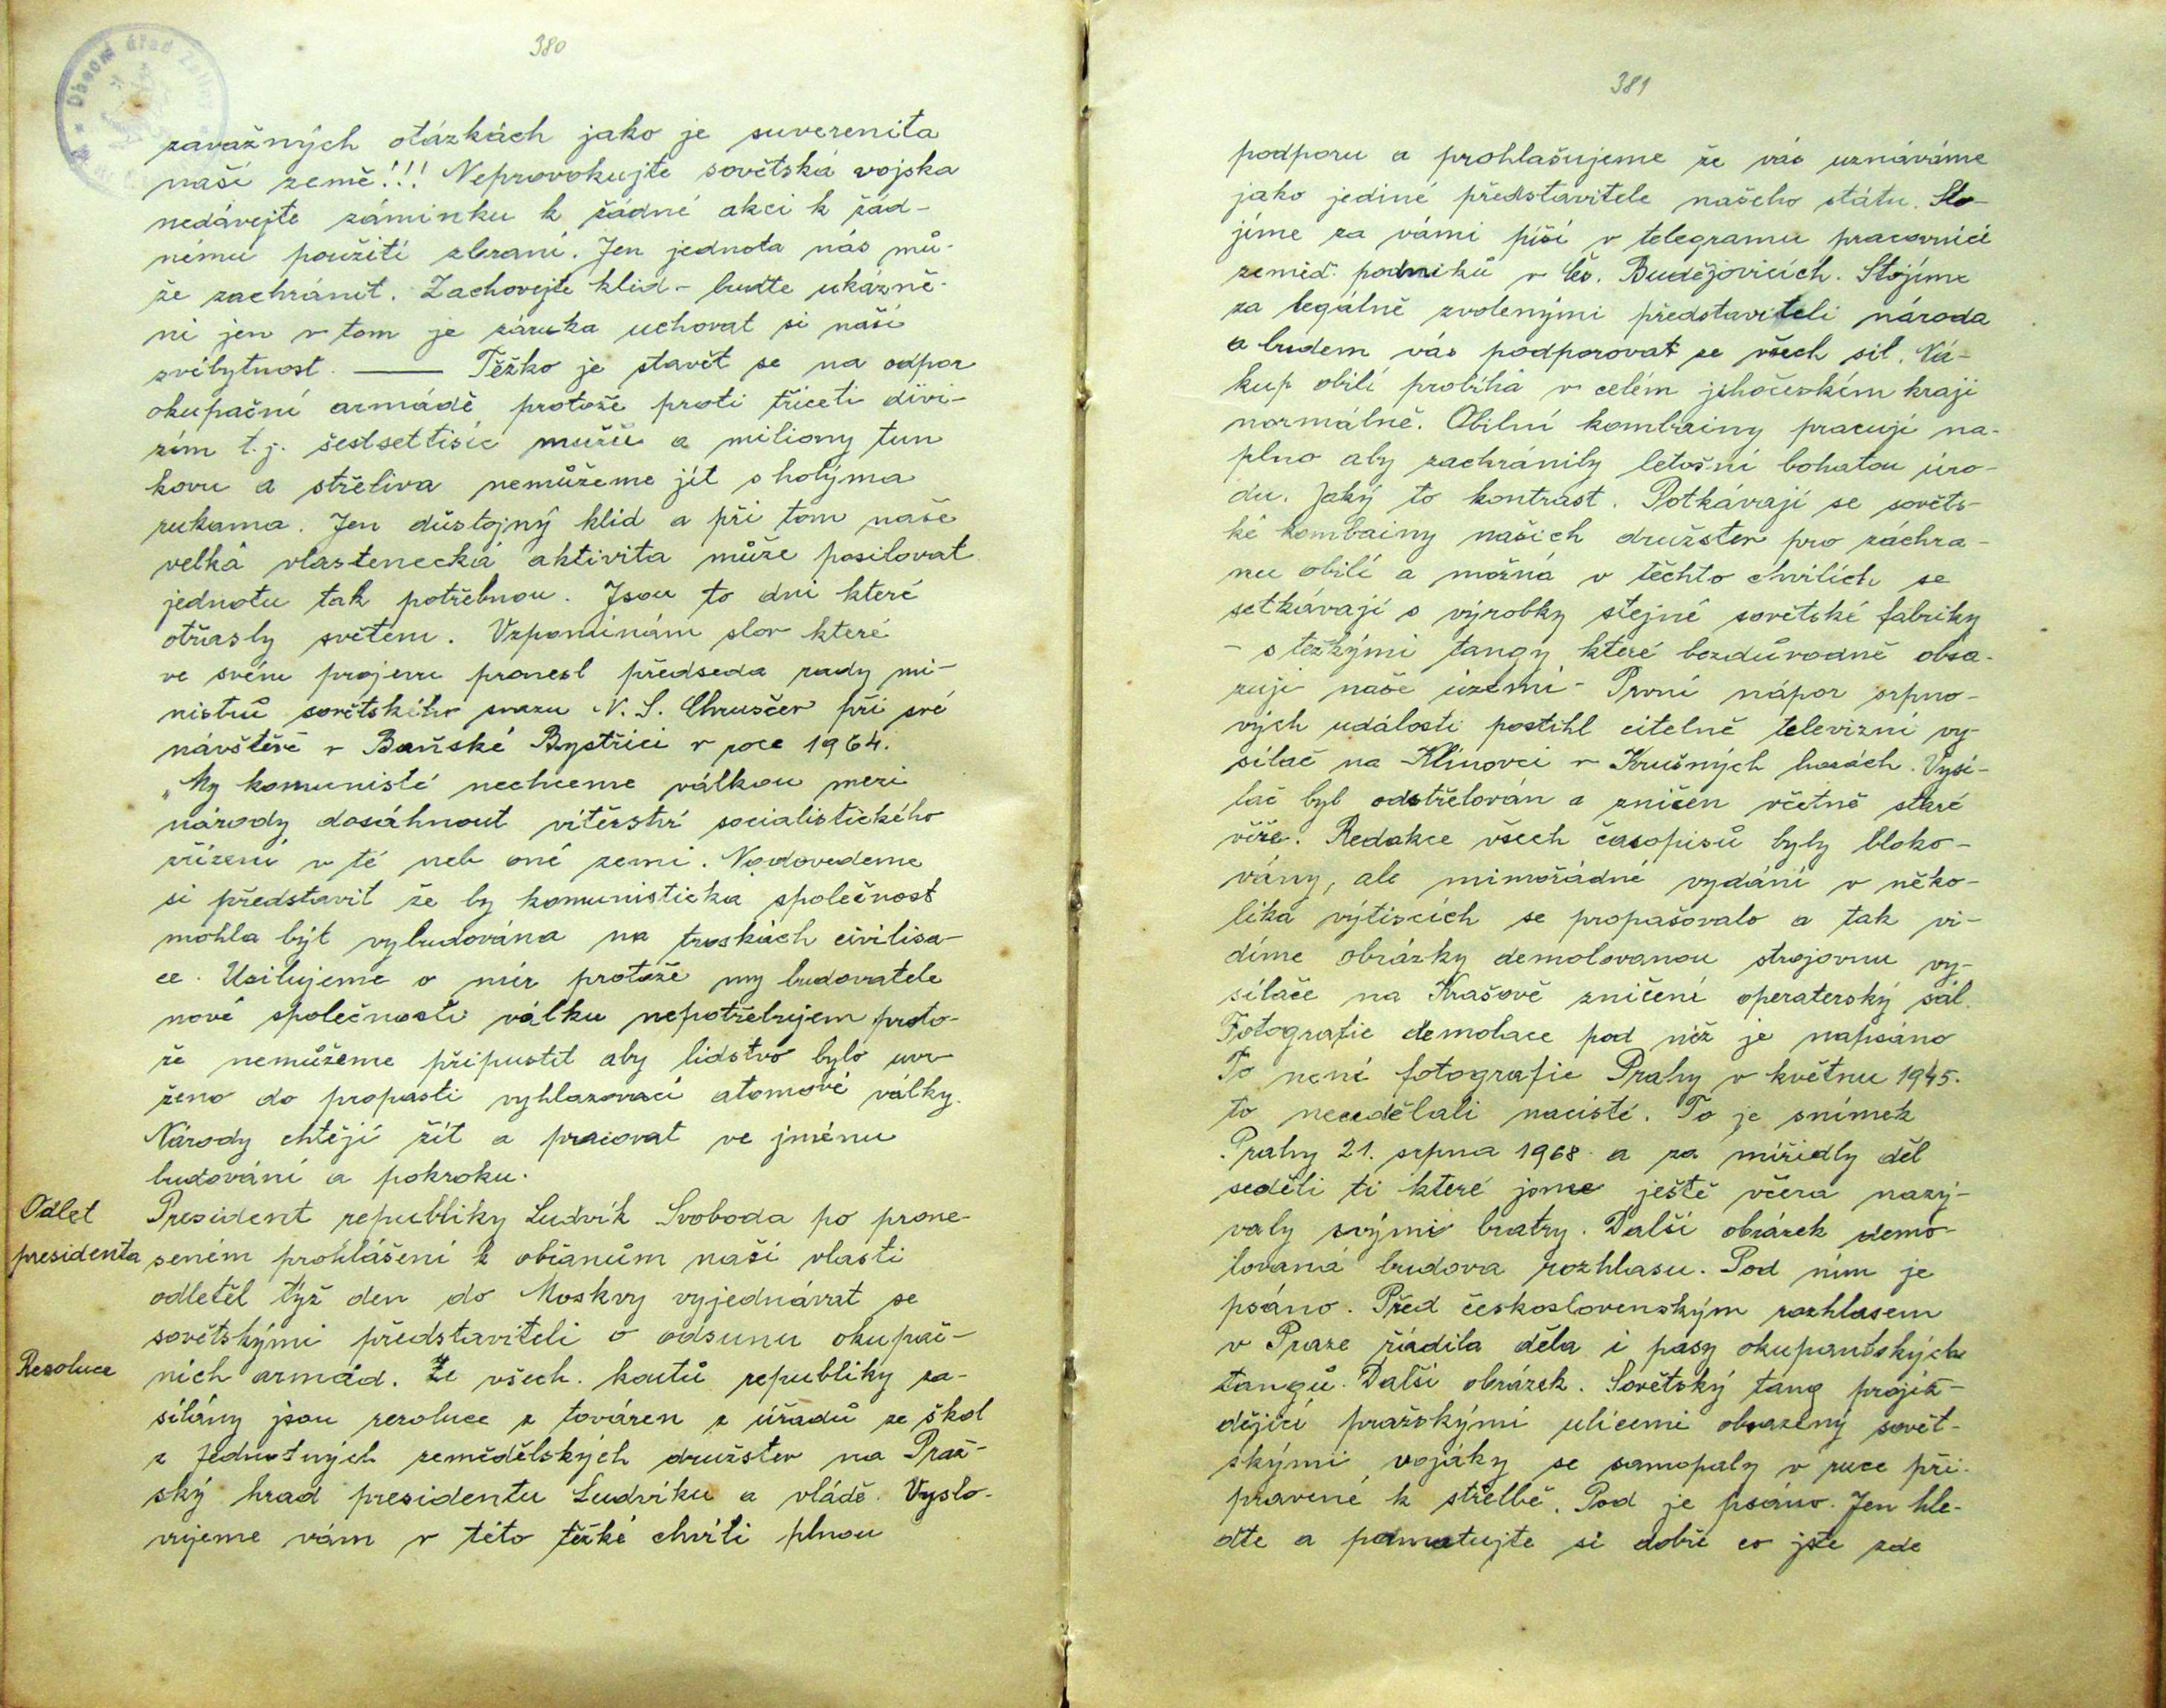 380
závažných otázkách jako je suverenita
naší země!!! Neprovokujte sovětská vojska
nedávejte záminku k žádné akci k žád-
nému použití zbraní. Jen jednota nás mů-
že zachránit. Zachovejte klid - buďte ukázně-
ni jen v tom je záruka uchovat si naší
svébytnost. — Těžko je stavět se na odpor
okupační armádě protože proti třiceti divi-
zím t.j. šestsettisíc mužů a miliony tun
kovu a střeliva nemůžeme jít s holýma
rukama. Jen důstojný klid a při tom naše
velká vlastenecká aktivita může posilovat
jednotu tak potřebnou. Jsou to dni které
otřásly světem. Vzpomínám slov které
ve svém projevu pronesl předseda rady mi-
nistrů sovětského svazu N. S. Chruščev při své
návštěvě v Baňské Bystřici v roce 1964.
„My komunisté nechceme válkou mezi
národy dosáhnout vítěství socialistického
zřízení v té neb oné zemi. Nedovedeme
si představit že by komunisticka společnost
mohla být vybudována na troskách civilisa-
ce. Usilujeme o mír protože my budovatele
nové společnosti válku nepotřebujem proto-
že nemůžeme připustit aby lidstvo bylo uvr-
ženo do propasti vyhlazovací atomové války.
Národy chtějí žít a pracovat ve jménu
budování a pokroku.
Odlet
presidenta
President republiky Ludvík Svoboda po prone-
seném prohlášení k občanům naší vlasti
odletěl týž den do Moskvy vyjednávat se
sovětskými představiteli o odsunu okupač-
Resoluce
ních armád. Ze všech koutů republiky za-
sílány jsou resoluce z továren z úřadů ze škol
z Jednotných zemědělských družstev na Praž-
ský hrad presidentu Ludvíku a vládě. Vyslo-
vujeme vám v této těžké chvíli plnou
381
podporu a prohlašujeme že vás uznáváme
jako jediné představitele našeho státu. Sto-
jíme za vámi píší v telegramu pracovníci
zeměd. podniků v Čes. Budějovicích. Stojíme
za legálně zvolenými představiteli národa
a budem vás podporovat ze všech sil. Ná-
kup obilí probíhá v celém jihočeském kraji
normálně. Obilní kombainy pracují na-
plno aby zachránily letošní bohatou úro-
du. Jaký to kontrast. Potkávají se sověts-
ké kombainy našich družstev pro záchra-
nu obilí a možná v těchto chvílích se
setkávají s výrobky stejné sovětské fabriky
- s těžkými tangy které bezdůvodně obsa-
zují naše území - První nápor srpno-
vých událostí postihl citelně televizní vy-
sílač na Klínovci v Krušných horách. Vysí-
lač byl odstřelován a zničen včetně staré
věže. Redakce všech časopisů byly bloko-
vány, ale mimořádné vydání v něko-
lika výtiscích se propašovalo a tak vi-
díme obrázky demolovanou strojovnu vy-
sílače na Krašově zničení operaterský sál.
Fotografie demolace pod níž je napsáno
To není fotografie Prahy v květnu 1945.
to neudělali nacisté. To je snímek
Prahy 21. srpna 1968 a za mířidly děl
seděli ti které jsme ještě včera nazý-
valy svými bratry. Další obrázek demo-
lovaná budova rozhlasu. Pod ním je
psáno. Před československým rozhlasem
v Praze řádila děla i pasy okupantských
tangů. Další obrázek. Sovětský tang projíž-
dějící pražskými ulicemi obsazený sovět-
skými vojáky se samopaly v ruce při-
pravené k střelbě. Pod je psáno. Jen hle-
ďte a pamatujte si dobře co jste zde